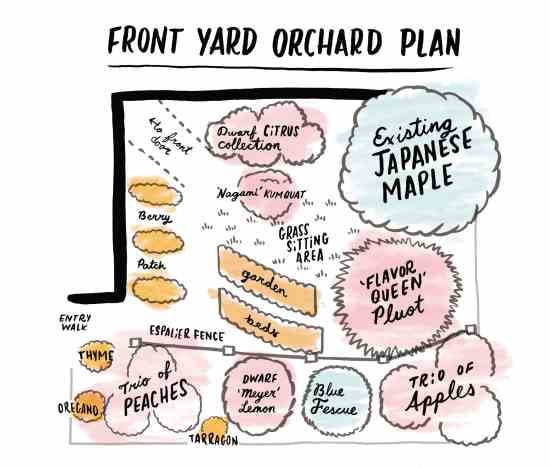 FRONT YARD ORCHARD PLAN
to front
door
Dwarf CITRUS
Collection
Existing
JAPANESE
MAPLE
'Nagami' KUMQUAT
Berry
Patch
GRASS
SITTING
AREA
garden
beds
'FLAVOR
QUEEN'
Pluot
ENTRY
WALK
ESPALIER FENCE
THYME
Trio of
PEACHES
OREGANO
TARRAGON
DWARF
'Meyer'
Lemon
Blue
Fescue
TRIO OF
Apples